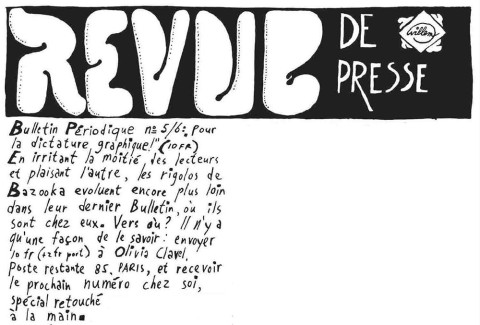 REVUE
DE
PRESSE
Willem
Bulletin Périodique n° 5/6: "Pour
la dictature graphique!" (10 FR)
En irritant la moitié des lecteurs
et plaisant l'autre, les rigolos de
Bazooka evoluent encore plus loin
dans leur dernier Bulletin, où ils
sont chez eux. Vers où? Il n'y a
qu'une façon de le savoir: envoyer
10 fr (+2 fr port) à Olivia Clavel,
Poste restante 85. PARIS, et recevoir
le prochain numéro chez soi,
spécial retouché
à la main.